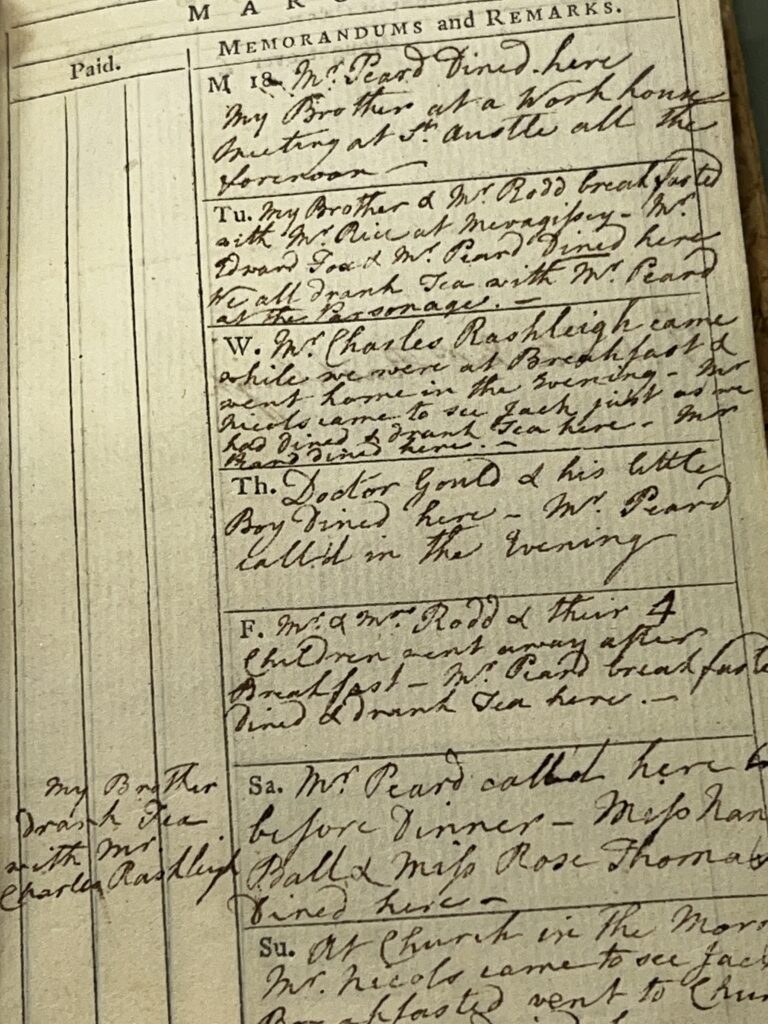 MAR
MEMORANDUMS and REMARKS.
Paid.
M 18. Mr. Peard Dined here
My Brother at a Work house
Meeting at St. Austle all the
forenoon —
Tu. My Brother & Mr. Rodd breakfasted
with Mr. Rice at Mevagissey — Mr.
Edward Fox & Mr. Peard Dined here
We all drank Tea with Mr. Peard
at the Parsonage. —
W. Mr. Charles Rashleigh came
while we were at Breakfast &
went home in the Evening — Mr
Nicols came to see Jack just as we
had Dined & drank Tea here — Mr
Peard dined here. —
Th. Doctor Gould & his little
Boy Dined here — Mr. Peard
call'd in the Evening
F. Mr. & Mrs. Rodd & their 4
Children went away after
Breakfast — Mr. Peard breakfasted
Dined & drank Tea here. —
My Brother
drank Tea
with Mr.
Charles Rashleigh
Sa. Mr. Peard call'd here
before Dinner — Miss Nan
Ball & Miss Rose Thomas
Dined here —
Su. At Church in the Morn
Mr. Nicols came to see Jack
Breakfasted went to Chur